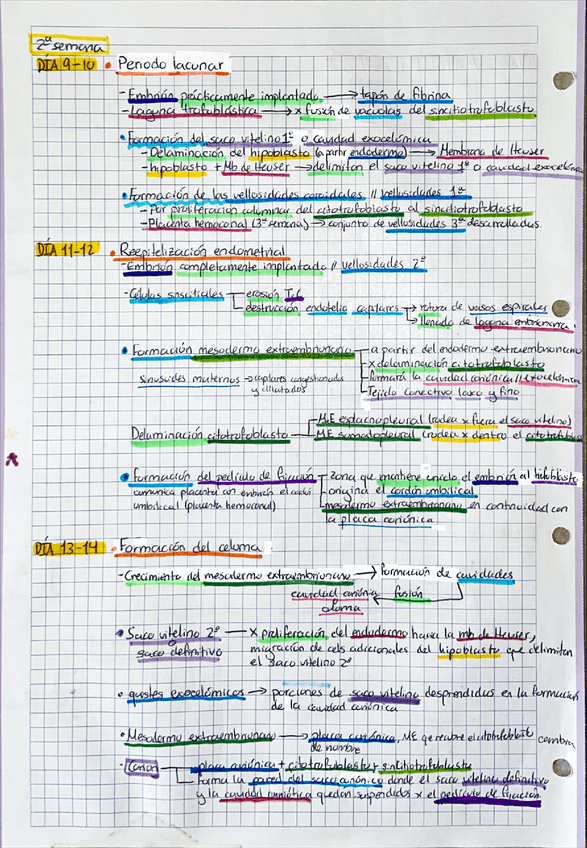 2ª semana
DÍA 9-10 • Periodo lacunar
- Embrión prácticamente implantado → tapón de fibrina
- Laguna trofoblástica → x fusión de vacuolas del sincitiotrofoblasto
• Formación del saco vitelino 1º o cavidad exocelómica
- Delaminación del hipoblasto (a partir endodermo) → Membrana de Heuser
- hipoblasto + Mb de Heuser → delimitan el saco vitelino 1º o cavidad exocelómica
• Formación de las vellosidades coroidales // vellosidades 1ª
- Por proliferación columnar del citotrofoblasto al sincitiotrofoblasto
- Placenta hemocorial (3ª semana) → conjunto de vellosidades 3ª desarrolladas
DÍA 11-12 • Reepitelización endometrial
- Embrión completamente implantado // vellosidades 2ª
- Células sinsitiales erosión TC
destrucción endotelio capilares → rotura de vasos espirales
→ llenado de laguna embrionaria
• Formación mesodermo extraembrionario a partir del endodermo extraembrionario
x delaminación citotrofoblasto
formará la cavidad coriónica //
sinusoides maternos → capilares congestionados Tejido conectivo laxo y fino
y dilatados
ME esplacnopleural (rodea x fuera el saco vitelino)
Delaminación citotrofoblasto ME somatopleural (rodea x dentro el citotrofoblasto
• Formación del pedículo de fijación zona que mantiene unido el embrión al trofoblasto
comunica placenta con embrión el cordón origina el cordón umbilical
umbilical (placenta hemocorial) mesodermo extraembrionario en continuidad con
la placa coriónica
DÍA 13-14 • Formación del celoma
- Crecimiento del mesodermo extraembrionario → Formación de cavidades
cavidad coriónica ← fusión
o celoma
• Saco vitelino 2º → x proliferación del endodermo hacia la mb de Heuser,
o saco definitivo migración de cels adicionales del hipoblasto que delimitan
el saco vitelino 2º
• quistes exocelómicos → porciones de saco vitelino desprendidos en la formación
de la cavidad coriónica
• Mesodermo extraembrionario → placa coriónica, ME que recubre el citotrofoblasto cambia
de nombre
• Corion placa coriónica + citotrofoblasto + sintitiotrofoblasto
forma la pared del saco coriónico donde el saco vitelino definitivo
y la cavidad amniótica quedan suspendidos x el pedículo de fijación